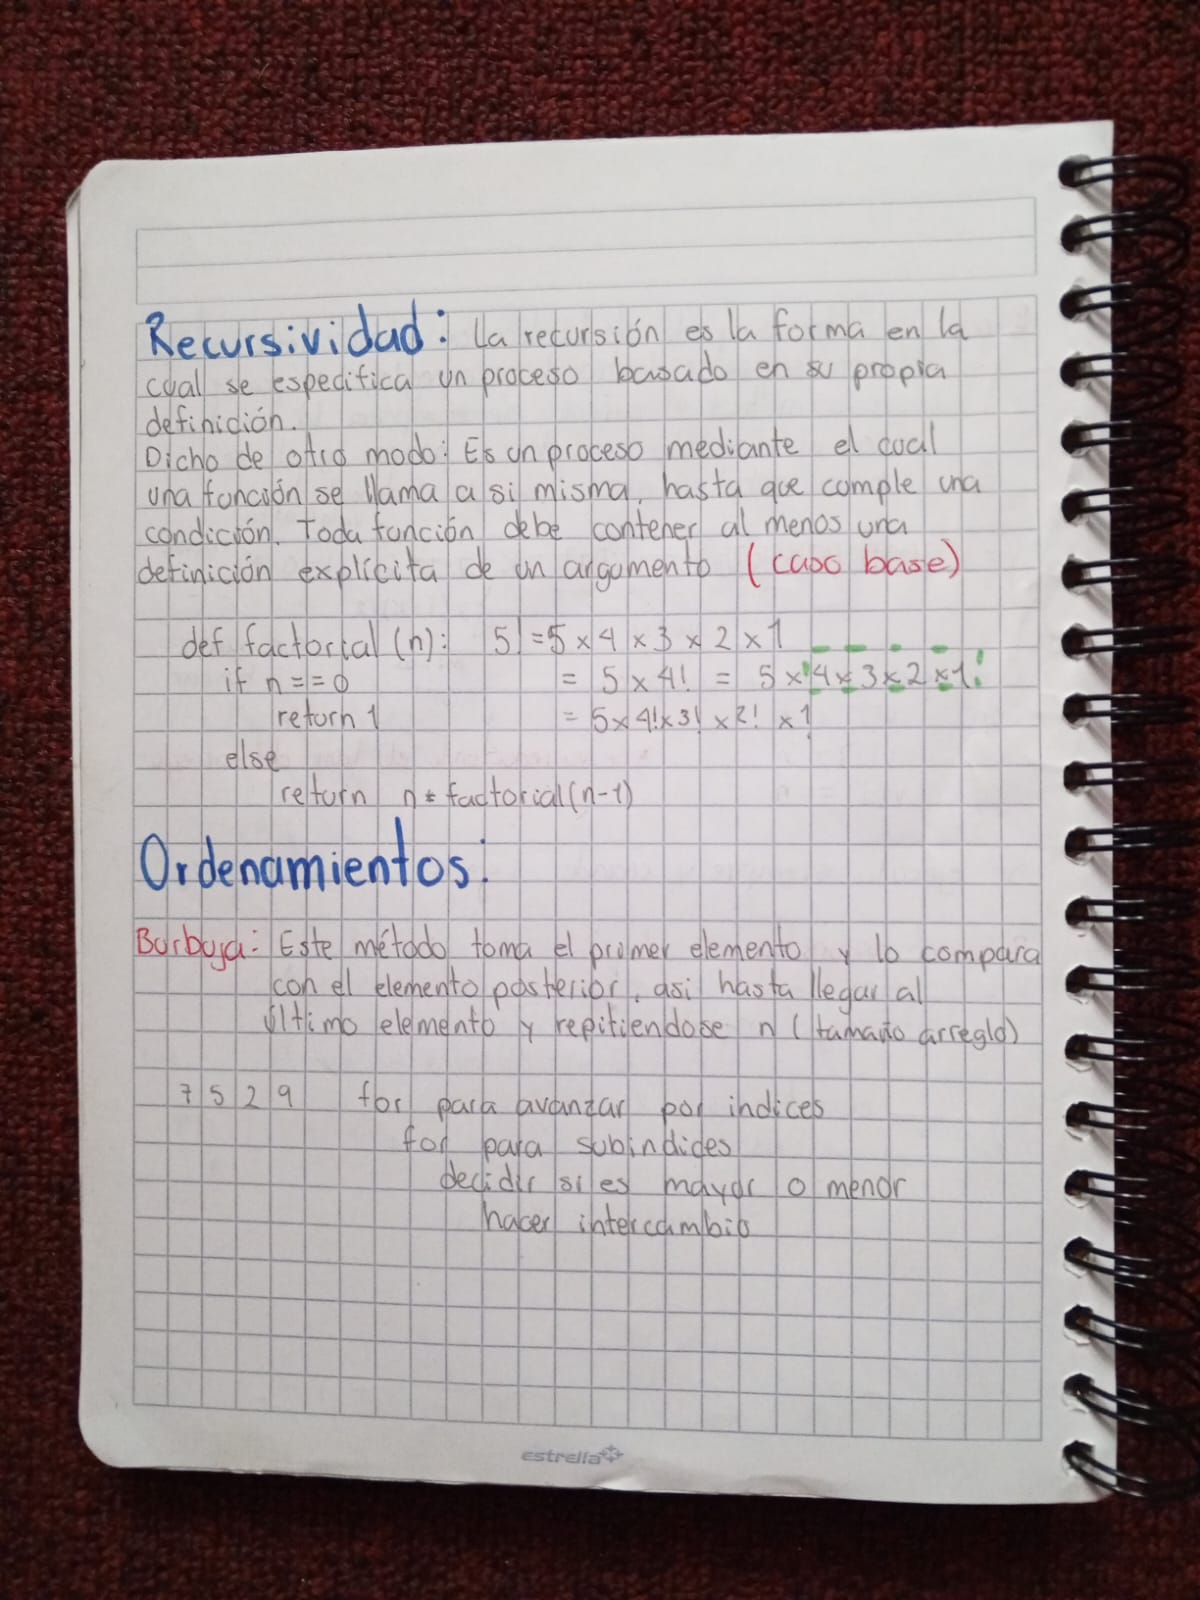 Recursividad: La recursión es la forma en la
cual se especifica un proceso basado en su propia
definición.
Dicho de otro modo: Es un proceso mediante el cual
una función se llama a si misma, hasta que cumple una
condición. Toda función debe contener al menos una
definición explícita de un argumento (caso base)
def factorial (n): 5! = 5 x 4 x 3 x 2 x 1
if n == 0 = 5 x 4! = 5 x 4 x 3 x 2 x 1
return 1 = 5 x 4! x 3! x 2! x 1
else
return n * factorial (n-1)
Ordenamientos:
Burbuja: Este método toma el primer elemento y lo compara
con el elemento posterior, asi hasta llegar al
último elemento y repitiendose n (tamaño arreglo)
7 5 2 9 for para avanzar por indices
for para subindides
decidir si es mayor o menor
hacer intercambio
estrella